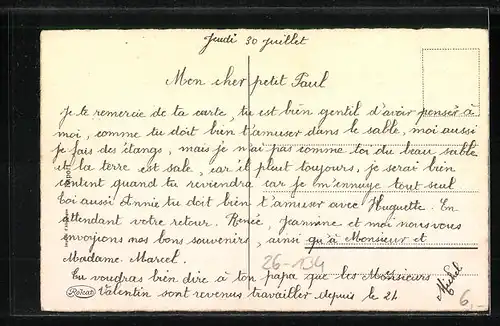 Jeudi 30 juillet
Mon cher petit Paul
Je te remercie de ta carte, tu est bien gentil d'avoir penser à
moi, comme tu doit bien t'amuser dans le sable, moi aussi
je fais des étangs, mais je n'ai pas comme toi du beau sable
et la terre est sale, car il pleut toujours, je serai bien
content quand tu reviendra car je m'ennuye tout seul
Toi aussi Annie tu doit bien t'amuser avec Huguette. En
attendant votre retour. Renée, Jeannine et moi nous vous
envoyions nos bons souvenirs, ainsi qu'à Monsieur et
Madame Marcel.
26-134
Tu voudras bien dire à ton papa que les Monsieurs
Valentin sont revenus travailler depuis le 21
Michel
6,-